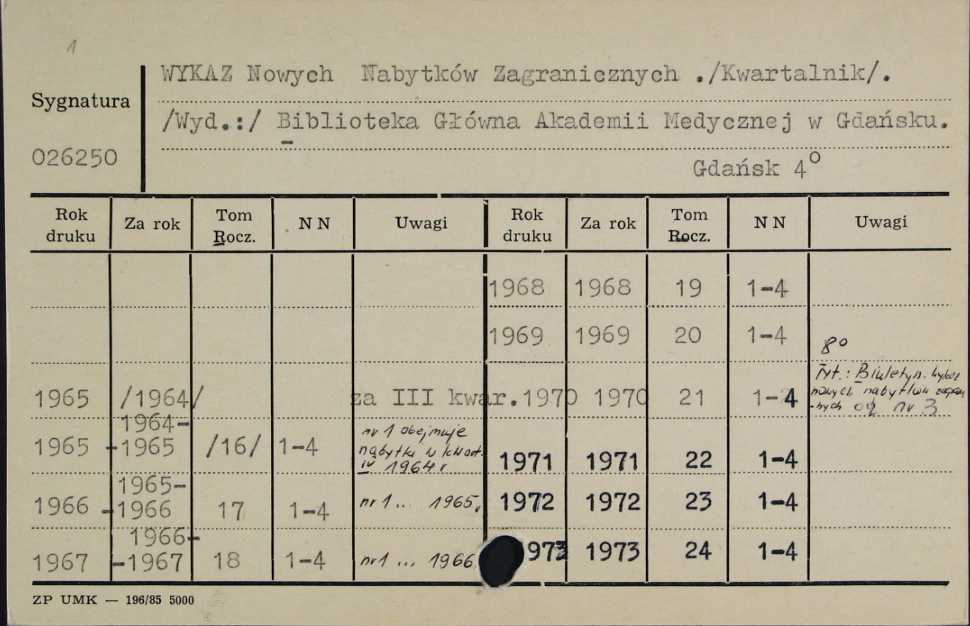 1
WYKAZ Nowych Nabytków Zagranicznych ./Kwartalnik/.
Sygnatura
/Wyd.:/ Biblioteka Główna Akademii Medycznej w Gdańsku.
026250
Gdańsk 4°
Rok druku Za rok Tom Rocz. N N Uwagi Rok druku Za rok Tom Rocz. N N Uwagi
1968 1968 19 1-4
1969 1969 20 1-4
8°
1965 /1964/ za III kwar. 1970 1970 21 1-4 Tyt.: Biuletyn.
nowych nabytków
od nr 3
1965 1964-1965 /16/ 1-4 nr 1 obejmuje
nabytki w kwart.
IV 1964 r
1971 1971 22 1-4
1966 1965-1966 17 1-4 nr 1 .. 1965. 1972 1972 23 1-4
1967 1966-1967 18 1-4 nr 1 ... 1966 973 1973 24 1-4
ZP UMK — 196/85 5000